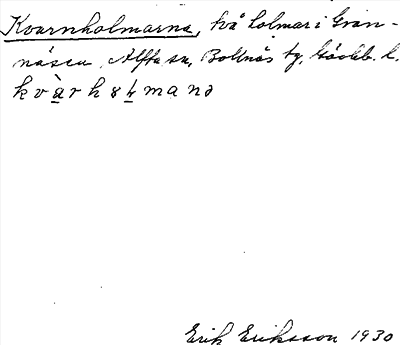 Kvarnholmarna, två holmar i Grän-
näsen, Alfta sn, Bollnäs tg, Gävleb. l.
kvàrhɷlmanə
Erik Eriksson 1930